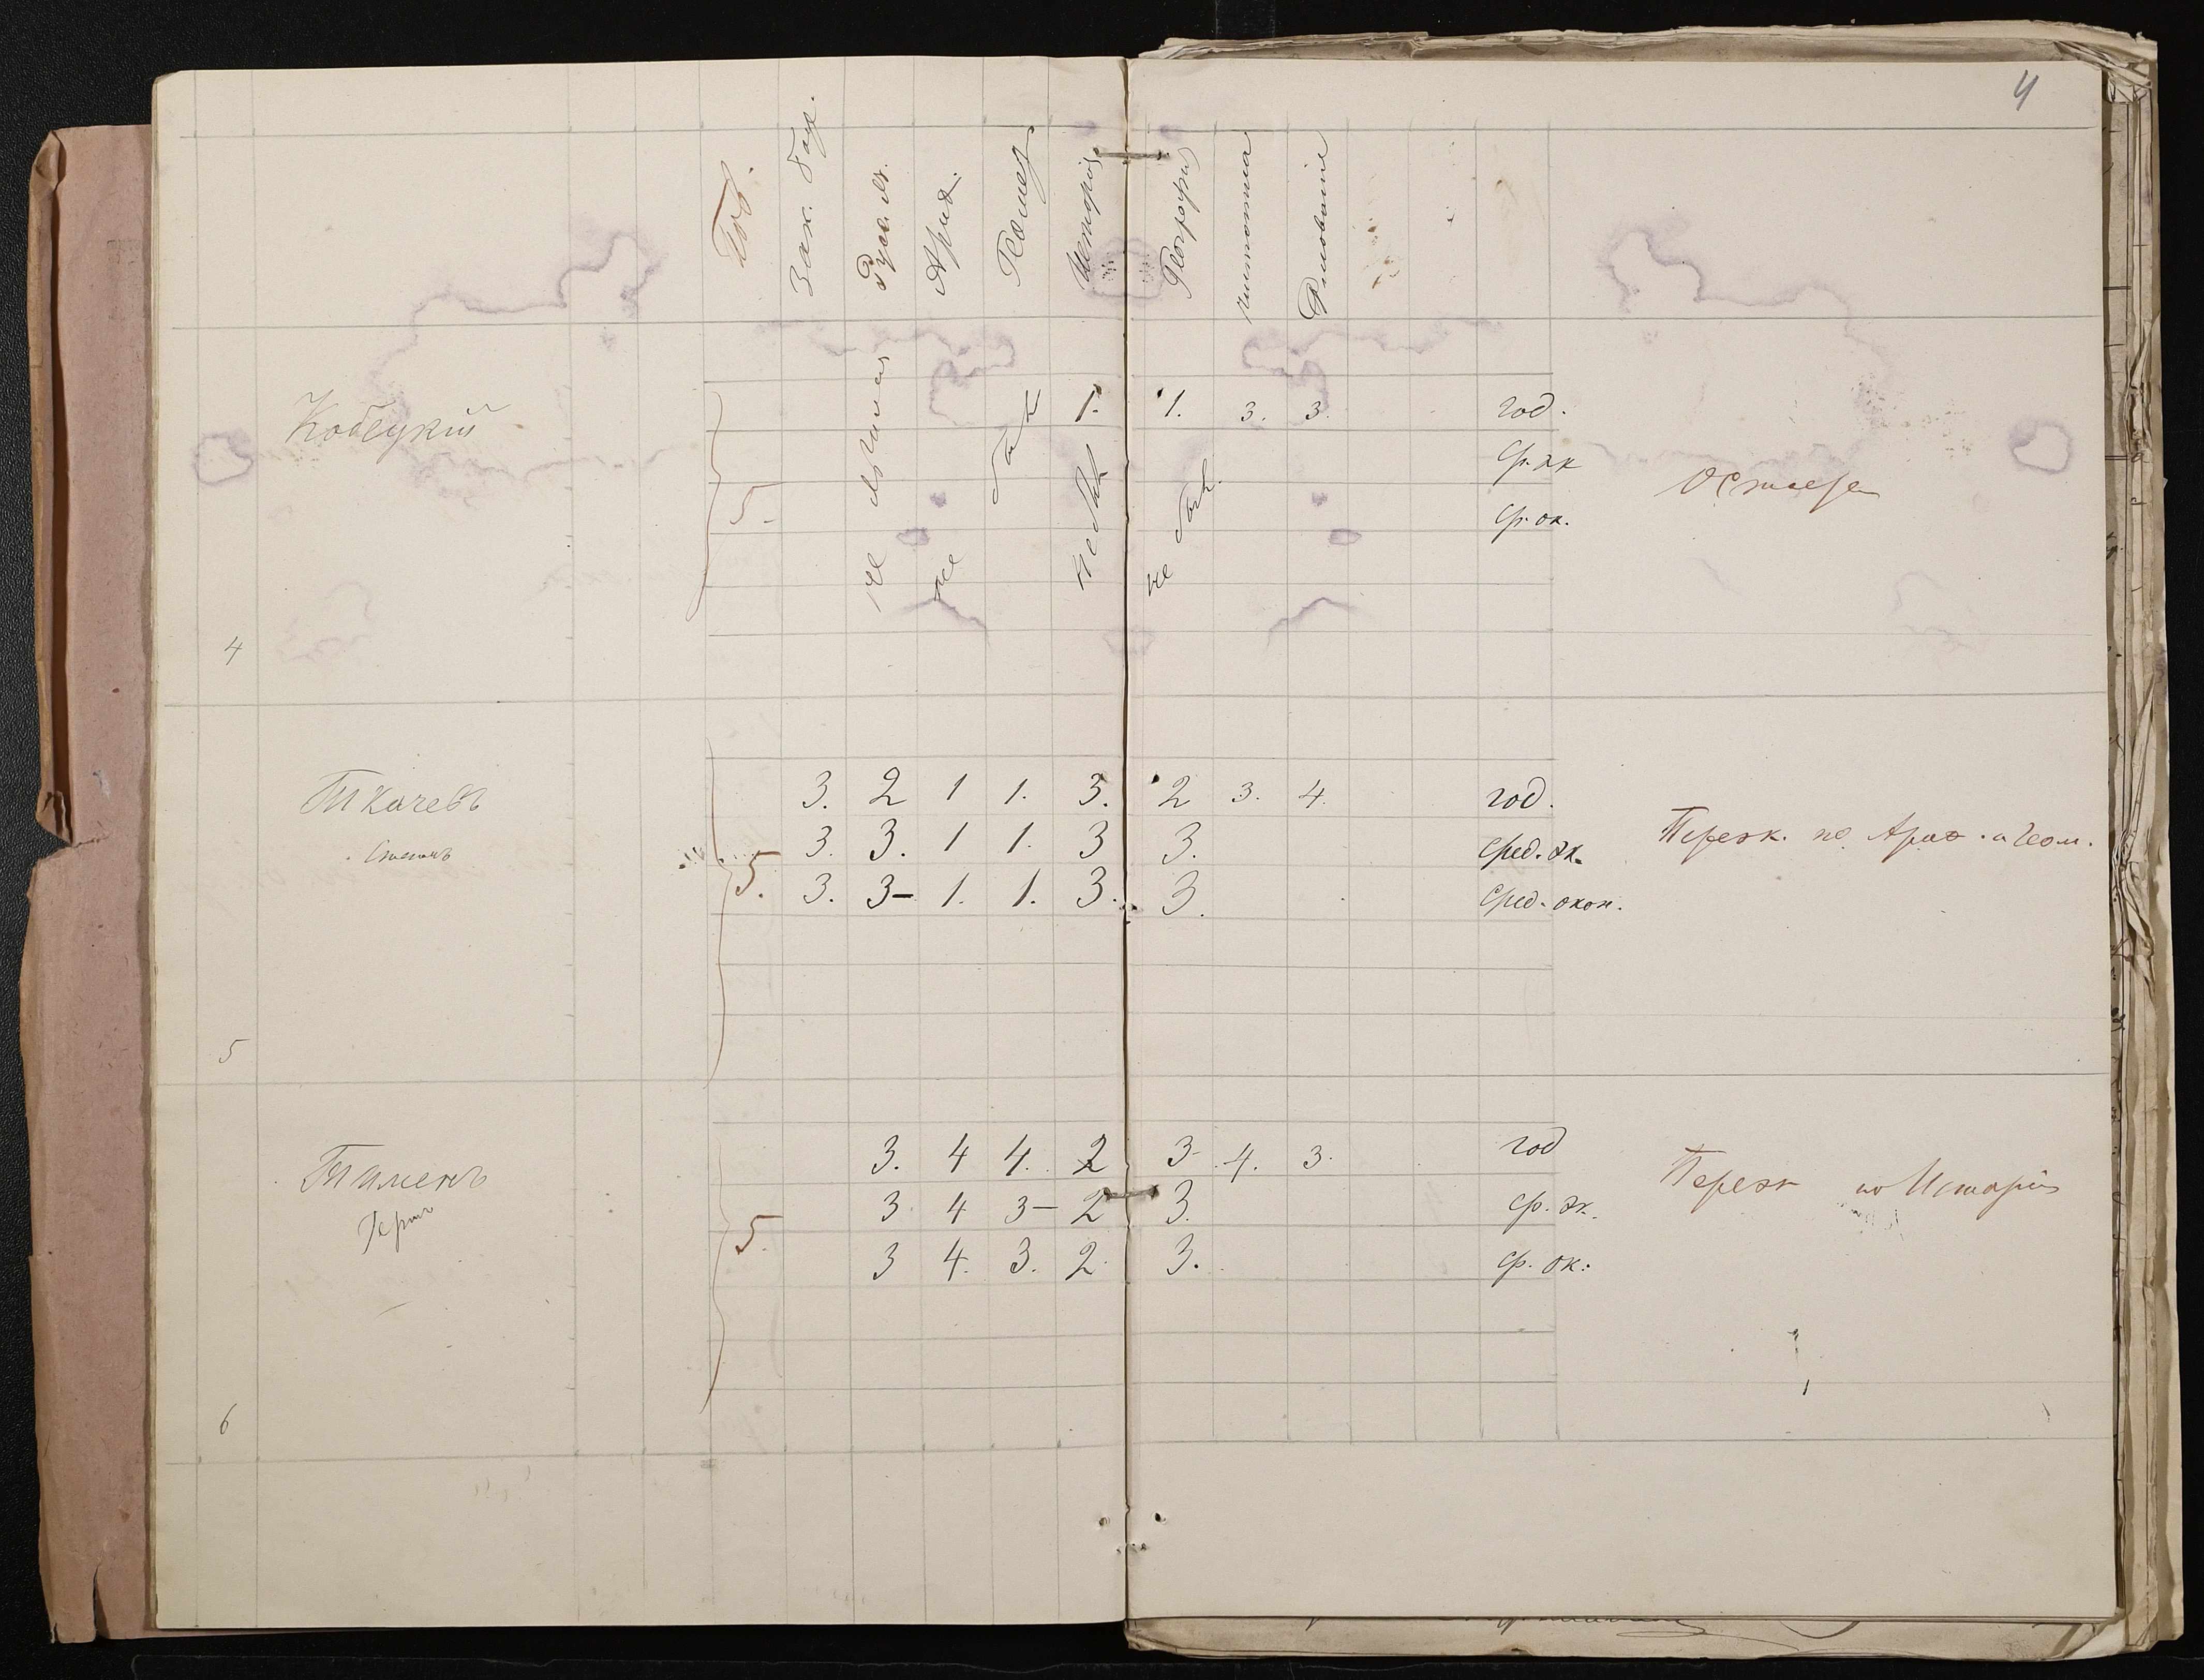 4
Пов.
Зак. Бож.
Русс. яз.
Ариѳ.
Геомет.
Исторія
Географія
чистописа
Рисованіе
Кобецкій
5.
не
явился
не
былъ
1.
не былъ
1.
не былъ.
3.
3.
год.
Ср. эк
Ср. ок.
Остается
4
Ткачевъ
5.
3. 2 1 1. 3. 2 3. 4. год.
3. 3. 1 1. 3 3. Сред. эк.
3. 3- 1. 1. 3. 3. Сред. окон.
Перэк. по Ариѳ. и Геом.
5
Тименъ
5.
3. 4 4. 2 3 4. 3. год
3 4 3- 2 3. ср. эк.
3 4. 3. 2. 3. ср. ок.
Перэк по Исторіи
6